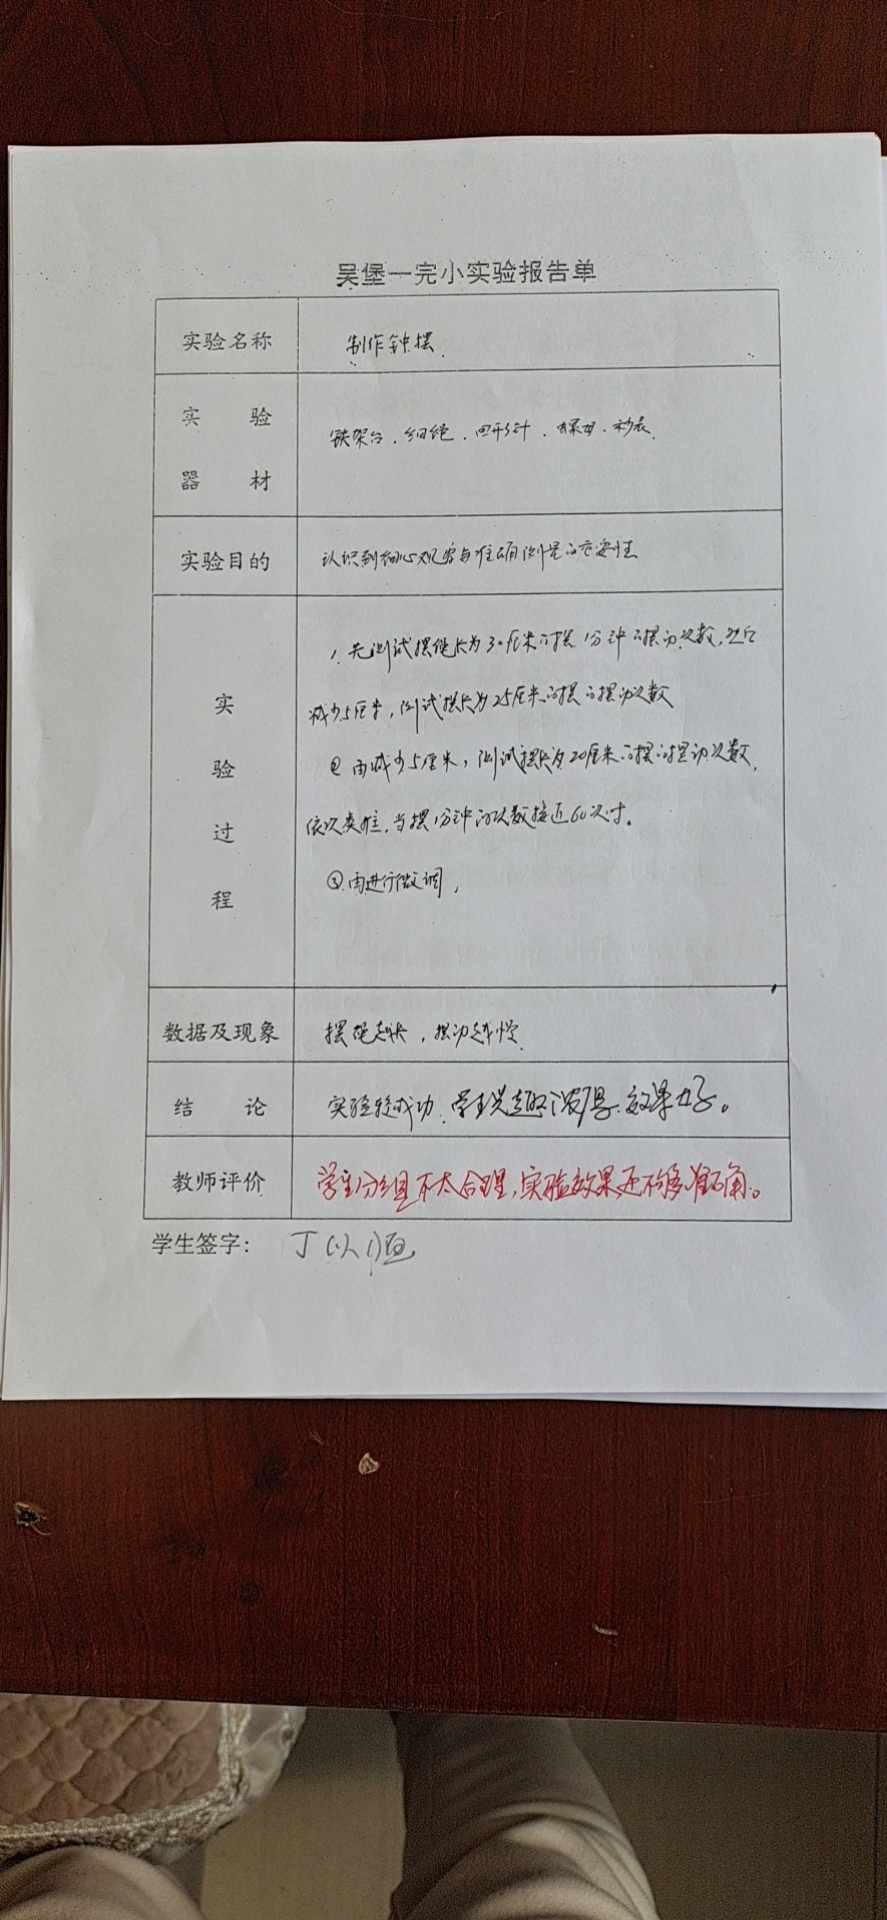 吴堡一完小实验报告单
实验名称 制作钟摆
实验器材 铁架台、细绳、回形针、螺母、秒表
实验目的 认识到细心观察与准确测量的重要性
实验过程
1、先测试摆绳长为30厘米的摆1分钟的摆动次数,然后
减少5厘米,测试摆长为25厘米的摆的摆动次数
②再减少5厘米,测试摆长为20厘米的摆的摆动次数,
依次类推,当摆1分钟的次数接近60次时。
③再进行微调,
数据及现象 摆绳越长,摆动越慢
结论 实验较成功、学生兴趣浓厚、效果好。
教师评价 学生分组不太合理,实验效果还不够准确。
学生签字: 丁